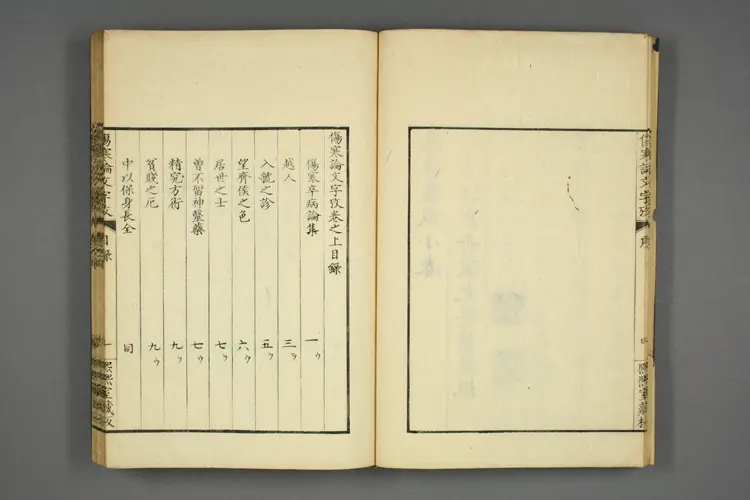 傷寒論文字攷
序
四
熙熙室藏
傷寒論文字攷卷之上目錄
傷寒卒病論集 一ウ
越人 三ウ
入虢之診 五ウ
望齊侯之色 六ウ
居世之士 七ウ
曾不留神醫藥 七ウ
精究方術 九ウ
貧賤之厄 九ウ
中以保身長全 同
傷寒論文字攷
目錄
一
熙熙室藏